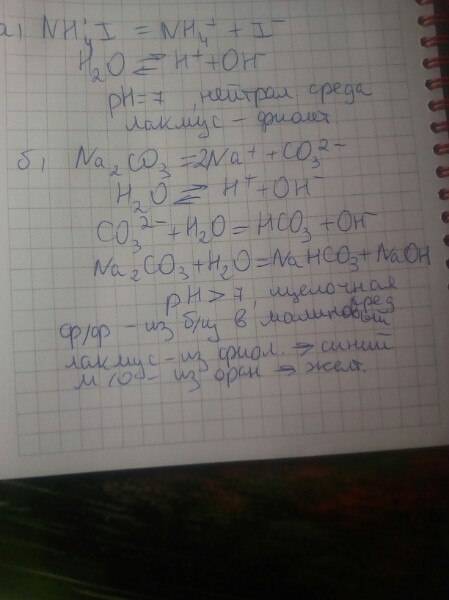 а) NH₄I = NH₄⁺ + I⁻
H₂O ⇄ H⁺ + OH⁻
pH=7, нейтрал среда
лакмус – фиолет
б) Na₂CO₃ = 2Na⁺ + CO₃²⁻
H₂O ⇄ H⁺ + OH⁻
CO₃²⁻ + H₂O = HCO₃ + OH⁻
Na₂CO₃ + H₂O = NaHCO₃ + NaOH
pH > 7, щелочная
сред
ф/ф – из б/ц в малиновый
лакмус – из фиол. → синий
м/о – из оран → желт.